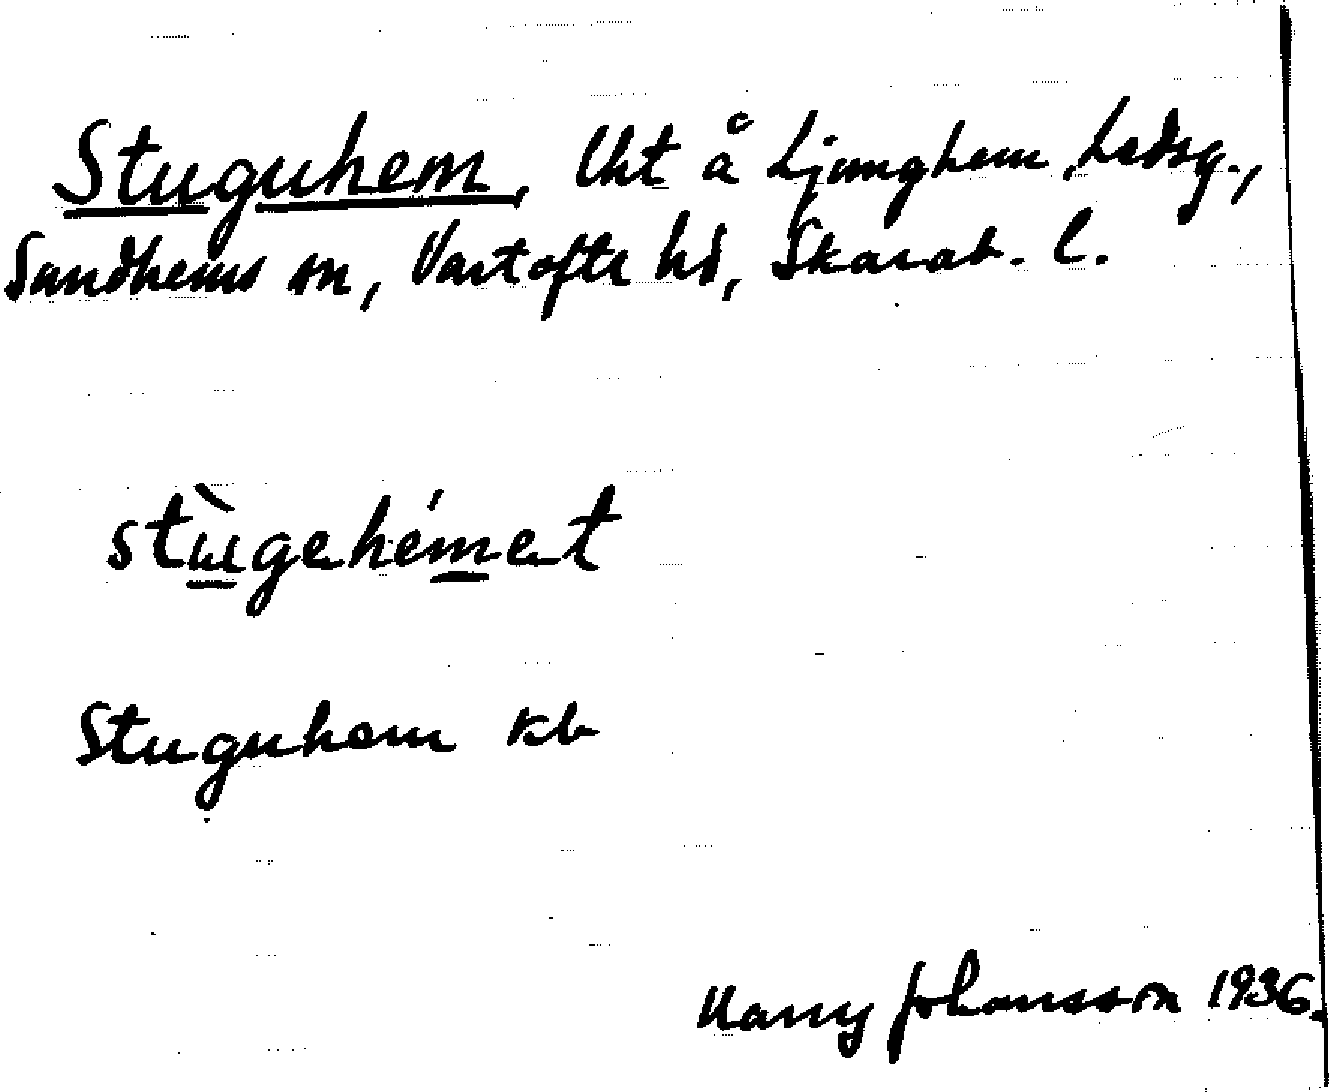 Stuguhem, Uht å Ljunghem, Ledsg.,
Sandhems sn, Vartofte hd, Skarab. l.
stùgehémet
Stuguhem kb
Harry Johansson 1936.